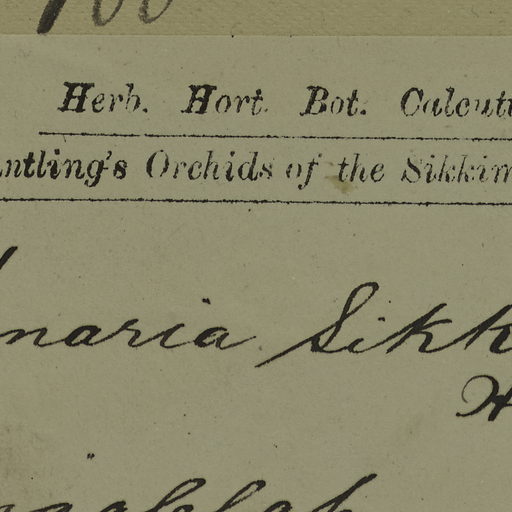 Herb. Hort. Bot. Calcutt
ntling's Orchids of the Sikkim
naria Sikk
H